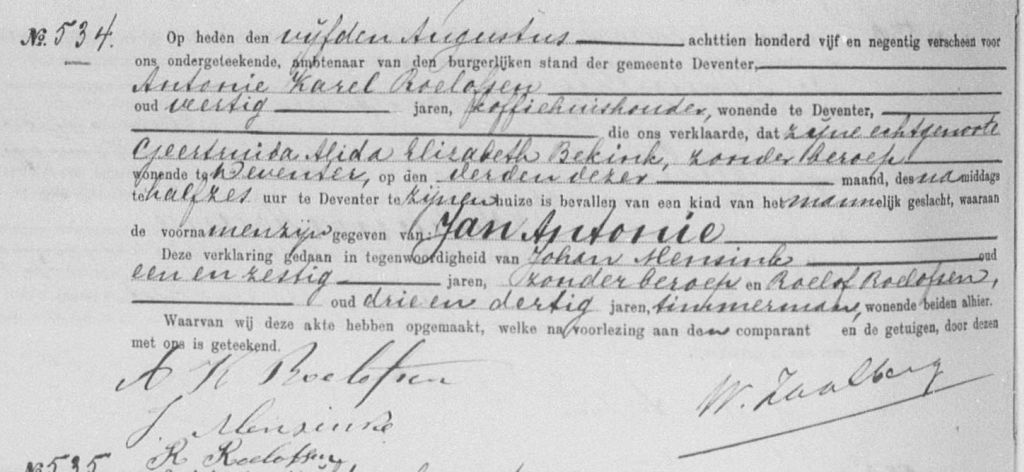 No. 534. Op heden den vijfden Augustus achttien honderd vijf en negentig verscheen voor
ons ondergeteekende, ambtenaar van den burgerlijken stand der gemeente Deventer,
Antonie Karel Roelofsen
oud veertig jaren, koffiehuishouder, wonende te Deventer,
die ons verklaarde, dat zijne echtgenoote
Geertruida Alida Elizabeth Bekink, zonder beroep
wonende te Deventer, op den derden dezer maand, des namiddags
te halfzes uur te Deventer te zijnen huize is bevallen van een kind van het mannelijk geslacht, waaraan
de voornamen zijn gegeven van: Jan Antonie
Deze verklaring gedaan in tegenwoordigheid van Johan Mensink oud
een en zestig jaren, zonder beroep en Roelof Roelofsen,
oud drie en dertig jaren, timmerman, wonende beiden alhier.
Waarvan wij deze akte hebben opgemaakt, welke na voorlezing aan den comparant en de getuigen, door dezen
met ons is geteekend.
A K Roelofsen
W. Zaalberg
J. Mensink
R Roelofsen
No. 535